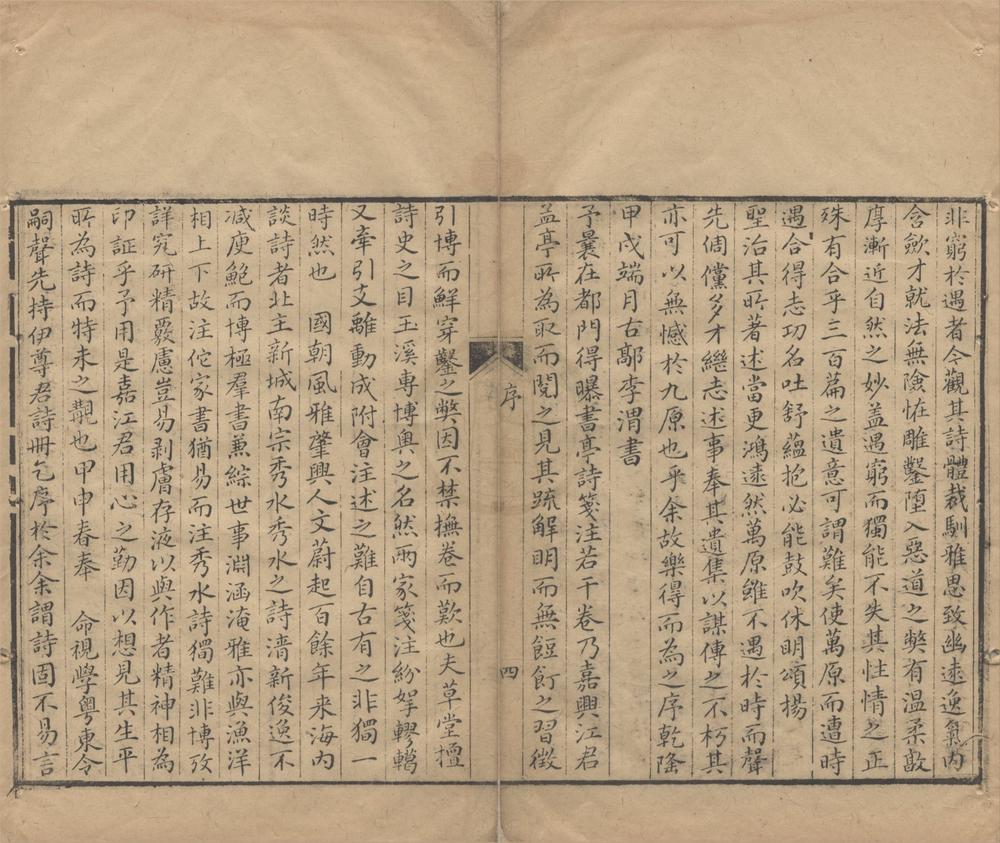 非窮於遇者今觀其詩體裁馴雅思致幽遠逸氣內
含斂才就法無險怪雕鑿墮入惡道之獘有溫柔敦
厚漸近自然之妙盖遇窮而獨能不失其性情之正
殊有合乎三百篇之遺意可謂難矣使萬原而遭時
遇合得志功名吐舒蘊抱必能鼓吹休明頌楊
聖治其所著述當更鴻遠然萬原雖不遇於時而聲
先倜儻多才繼志述事奉其遺集以謀傳之不朽其
亦可以無憾於九原也乎余故樂得而為之序乾隆
甲戍端月古鄢李渭書
予曩在都門得曝書亭詩箋注若干卷乃嘉興江君
孟亭所為取而閱之見其疏解明而無餖飣之習徵
序
四
引博而鮮穿鑿之獘因不禁撫卷而歎也夫草堂擅
詩史之目玉溪專博奧之名然兩家箋注紛挐轇轕
又牽引支離動成附會注述之難自古有之非獨一
時然也 國朝風雅肇興人文蔚起百餘年来海內
談詩者北主新城南宗秀水秀水之詩清新俊逸不
减庾鮑而博極羣書蕪綜世事淵涵淹雅亦與漁洋
相上下故注佗家書猶易而注秀水詩獨難非博攷
詳究研精覈慮豈易剥膚存液以與作者精神相為
印証乎予用是嘉江君用心之勤因以想見其生平
所為詩而特未之覯也甲申春奉 命視學粤東令
嗣聲先持伊尊君詩冊乞序於余余謂詩固不易言